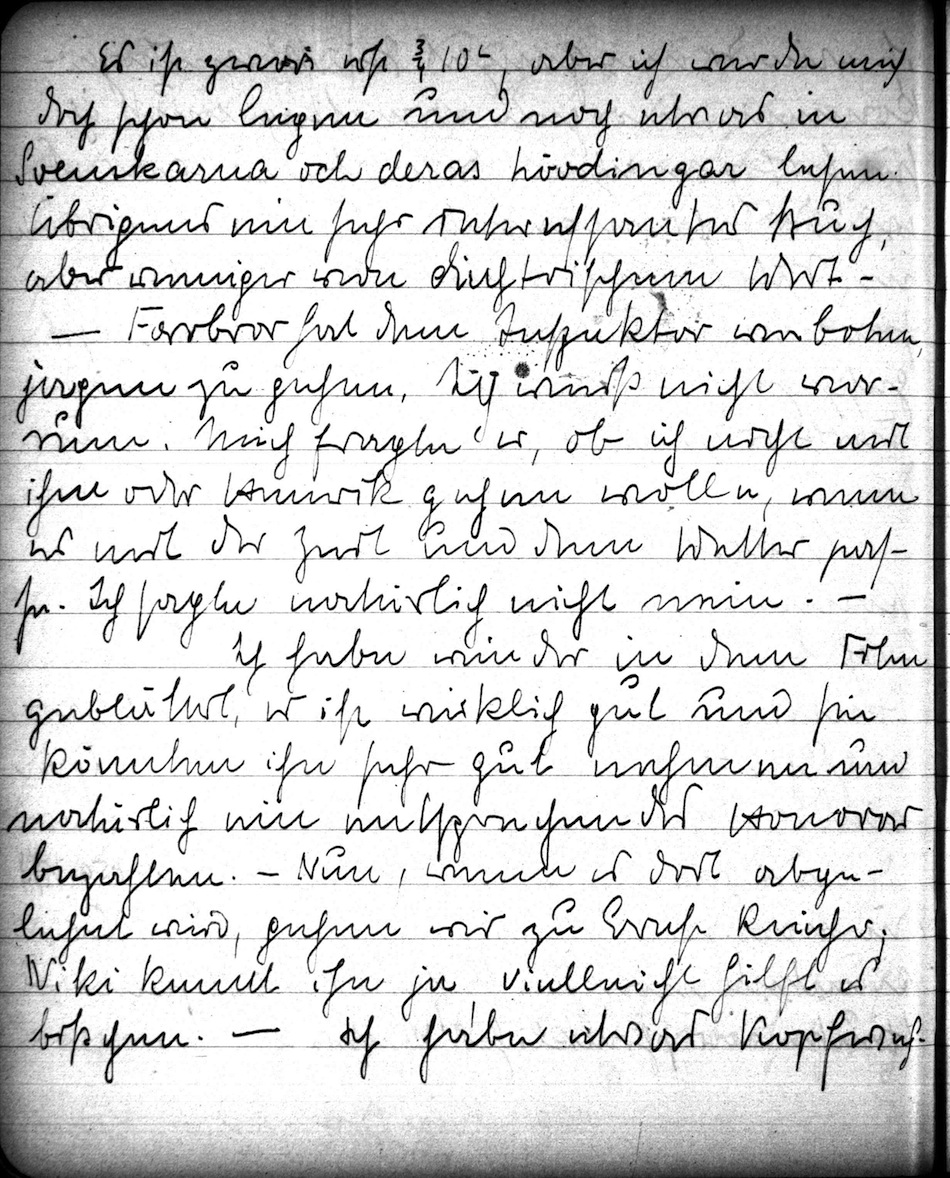 Es ist zwar erst ¾ 10ʰ, aber ich werde mich
doch schon legen und noch etwas in
Svenskarna och deras hövdingar lesen.
Übrigens ein sehr interessantes Buch,
aber weniger von dichterischem Wert. –
— Farbror hat dem Inspektor verboten,
jagen zu gehen. Ich weiß nicht war-
um. Mich fragte er, ob ich nicht mit
ihm oder Henrik gehen wolle, wenn
es mit der Zeit und dem Wetter pas-
se. Ich sagte natürlich nicht nein. –
Ich habe wieder in dem Film
geblättert, er ist wirklich gut und sie
könnten ihn sehr gut nehmen und
natürlich ein entsprechendes Honorar
bezahlen. – Nun, wenn es dort abge-
lehnt wird, gehen wir zu Ernst
Niki kennt ihn ja, vielleicht hilft es
bißchen. — Ich habe etwas Kopfweh.